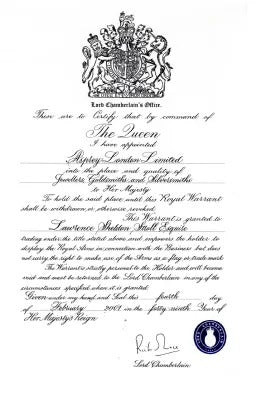 Lord Chamberlain's Office.
These are to Certify that by command of
The Queen
I have appointed
Asprey London Limited
into the place and quality of
Jewellers, Goldsmiths and Silversmiths
to Her Majesty
To hold the said place until this Royal Warrant
shall be withdrawn or otherwise revoked.
This Warrant is granted to
Lawrence Sheldon Stroll Esquire
trading under the title stated above and empowers the holder to
display the Royal Arms in connection with the Business but does
not carry the right to make use of the Arms as a flag or trade mark
The Warrant is strictly personal to the Holder and will become
void and must be returned to the Lord Chamberlain in any of the
circumstances specified when it is granted.
Given under my hand and Seal this fourth day
of February 2001 in the forty ninth Year of
Her Majesty's Reign
Lord Chamberlain